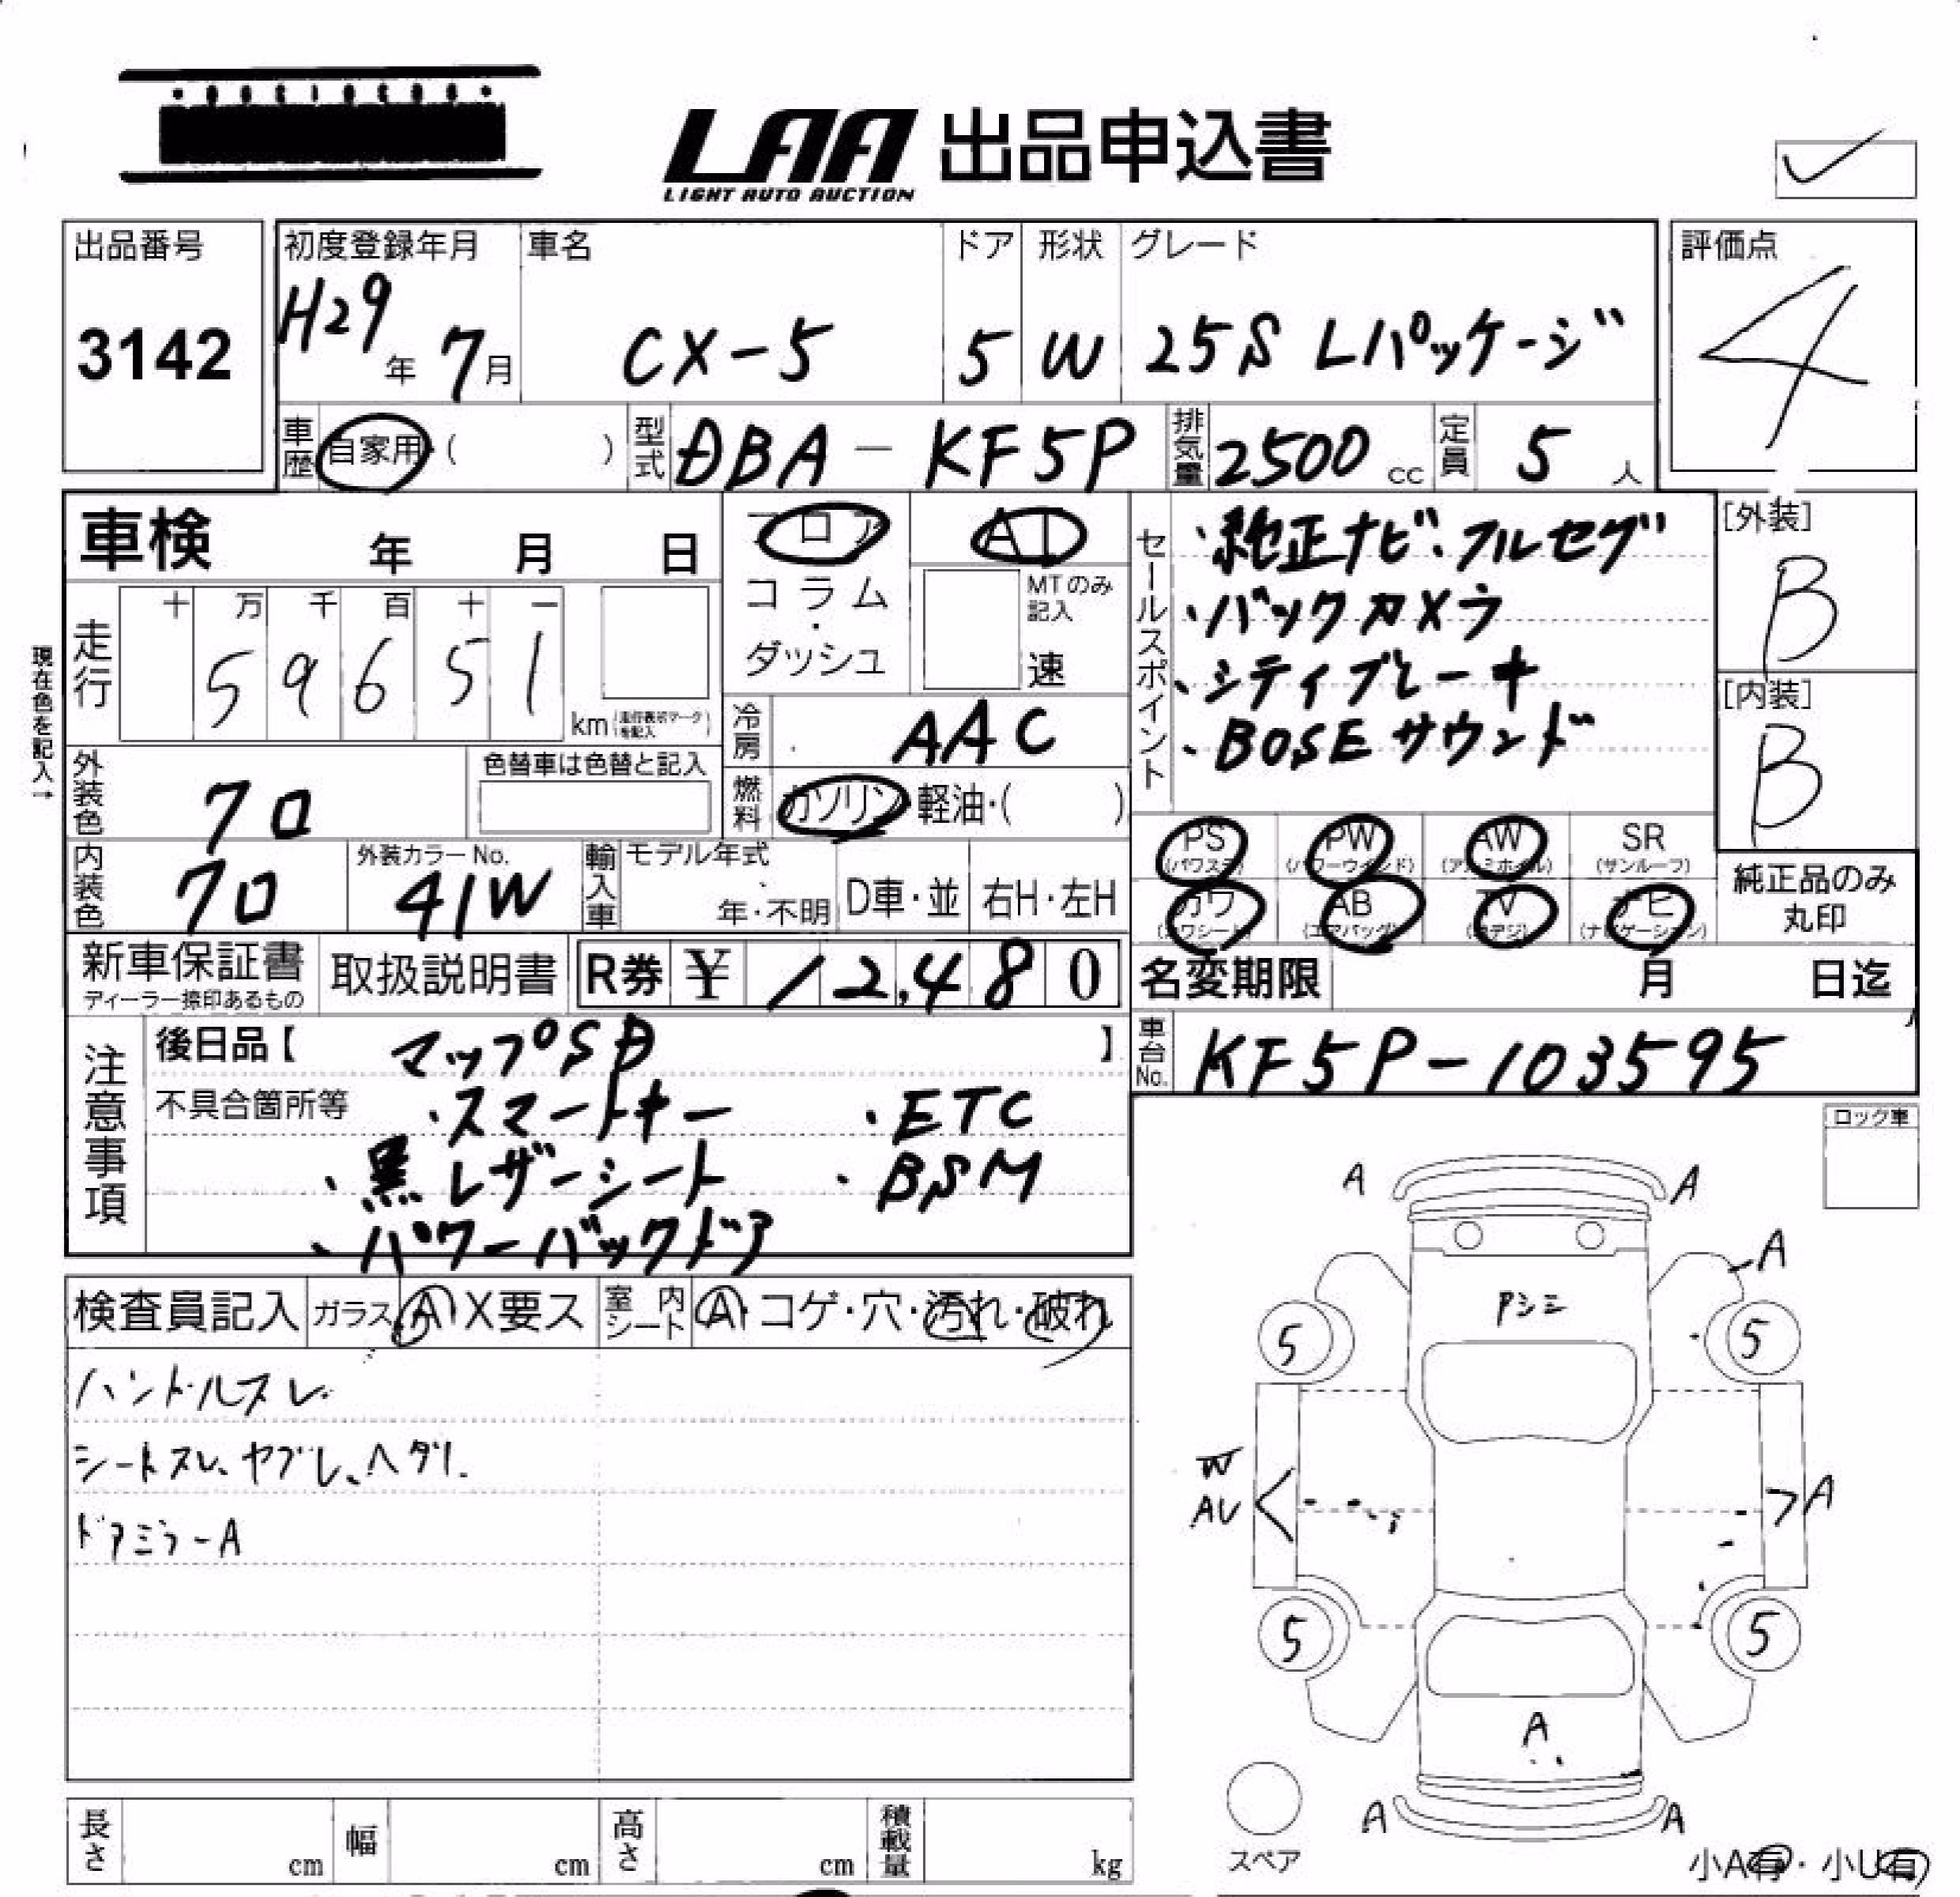 LAA 出品申込書
LIGHT AUTO AUCTION
出品番号 初度登録年月 車名 ドア 形状 グレード 評価点
3142 H29年 7月 CX-5 5 W 25S Lパッケージ 4
車歴 自家用・( ) 型式 DBA-KF5P 排気量 2500 cc 定員 5 人
車検 年 月 日
フロア AT
コラム・ダッシュ
MTのみ記入
速
セールスポイント
・純正ナビ・フルセグ
・バックカメラ
・シティブレーキ
・BOSEサウンド
[外装]
B
[内装]
B
現在色を記入→
走行 十 万 千 百 十 一
59651 km
冷房 AAC
外装色 クロ 色替車は色替と記入
燃料 ガソリン・軽油・( )
内装色 クロ 外装カラーNo. 41W 輸入車 モデル年式 年・不明 D車・並 右H・左H
PS (パワステ) PW (パワーウインド) AW (アルミホイル) SR (サンルーフ)
カワ (カワシート) AB (エアバッグ) TV (地デジ) ナビ (ナビゲーション)
純正品のみ丸印
新車保証書 ディーラー捺印あるもの 取扱説明書 R券 ¥ 12,480
名変期限 月 日迄
車台No. KF5P-103595
注意事項
後日品【 マップSD 】
不具合箇所等 ・スマートキー ・ETC
・黒レザーシート ・BSM
・パワーバックドア
ロック車
検査員記入 ガラス A X要ス 室内シート A・コゲ・穴・汚れ・破れ
ハンドルスレ
シートスレ、ヤブレ、ヘタリ
ドアミラーA
A A
A
5 5
W
AU A
5 5
A
A A
スペア
小A有・小U有
長さ cm 幅 cm 高さ cm 積載量 kg